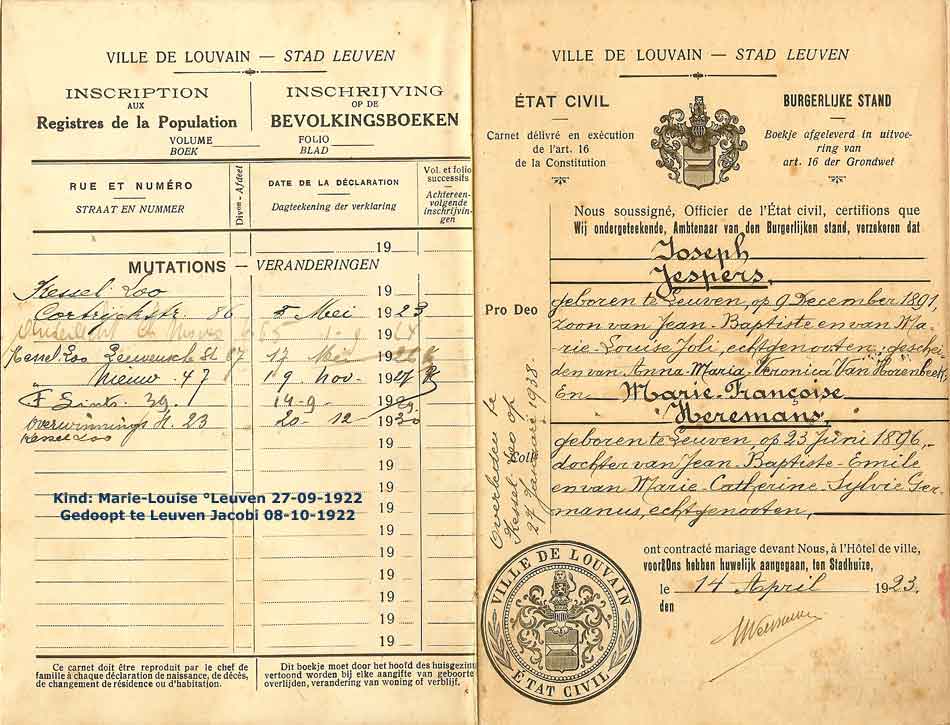 VILLE DE LOUVAIN — STAD LEUVEN
INSCRIPTION
AUX
Registres de la Population
INSCHRIJVING
OP DE
BEVOLKINGSBOEKEN
VOLUME
BOEK
FOLIO
BLAD
RUE ET NUMÉRO
STRAAT EN NUMMER
Divon - Afdeel
DATE DE LA DÉCLARATION
Dagteekening der verklaring
Vol. et folio
successifs
Achtereen-
volgende
inschrijvin-
gen
19
MUTATIONS — VERANDERINGEN
Kessel Loo 19
Cortrijckstr. 86 8 Mei 1923
65 1-9
Kessel-Loo 17 Mei
" Nieuw 47 19 Nov. 1927
F Smits 39. 14-9- 1929
Overwinnings 23 20-12-1930
Kessel Loo
19
19
19
Kind: Marie-Louise °Leuven 27-09-1922
Gedoopt te Leuven Jacobi 08-10-1922
19
19
19
19
19
19
Ce carnet doit être reproduit par le chef de
famille à chaque déclaration de naissance, de décès,
de changement de résidence ou d'habitation.
Dit boekje moet door het hoofd des huisgezins
vertoond worden bij elke aangifte van geboorte
overlijden, verandering van woning of verblijf.
VILLE DE LOUVAIN — STAD LEUVEN
ÉTAT CIVIL
Carnet délivré en exécution
de l'art. 16
de la Constitution
BURGERLIJKE STAND
Boekje afgeleverd in uitvoe-
ring van
art. 16 der Grondwet
Nous soussigné, Officier de l'État civil, certifions que
Wij ondergeteekende, Ambtenaar van den Burgerlijken stand, verzekeren dat
Joseph
Jespers,
Pro Deo
geboren te Leuven, op 9 December 1891,
zoon van Jean-Baptiste en van Ma-
rie-Louise Joli, echtgenooten, geschei-
den van Anna-Maria-Veronica Van Horenbeeck
En Marie-Françoise
Heremans,
geboren te Leuven, op 23 Juni 1896,
dochter van Jean-Baptiste-Emile
en van Marie-Catherine-Sylvie Ger-
manus, echtgenooten,
Overleden te
Kessel Loo op
27 Januari 1938.
ont contracté mariage devant Nous, à l'Hôtel de ville,
voor Ons hebben huwelijk aangegaan, ten Stadhuize,
le 14 April 1923.
den
VILLE DE LOUVAIN
ÉTAT CIVIL